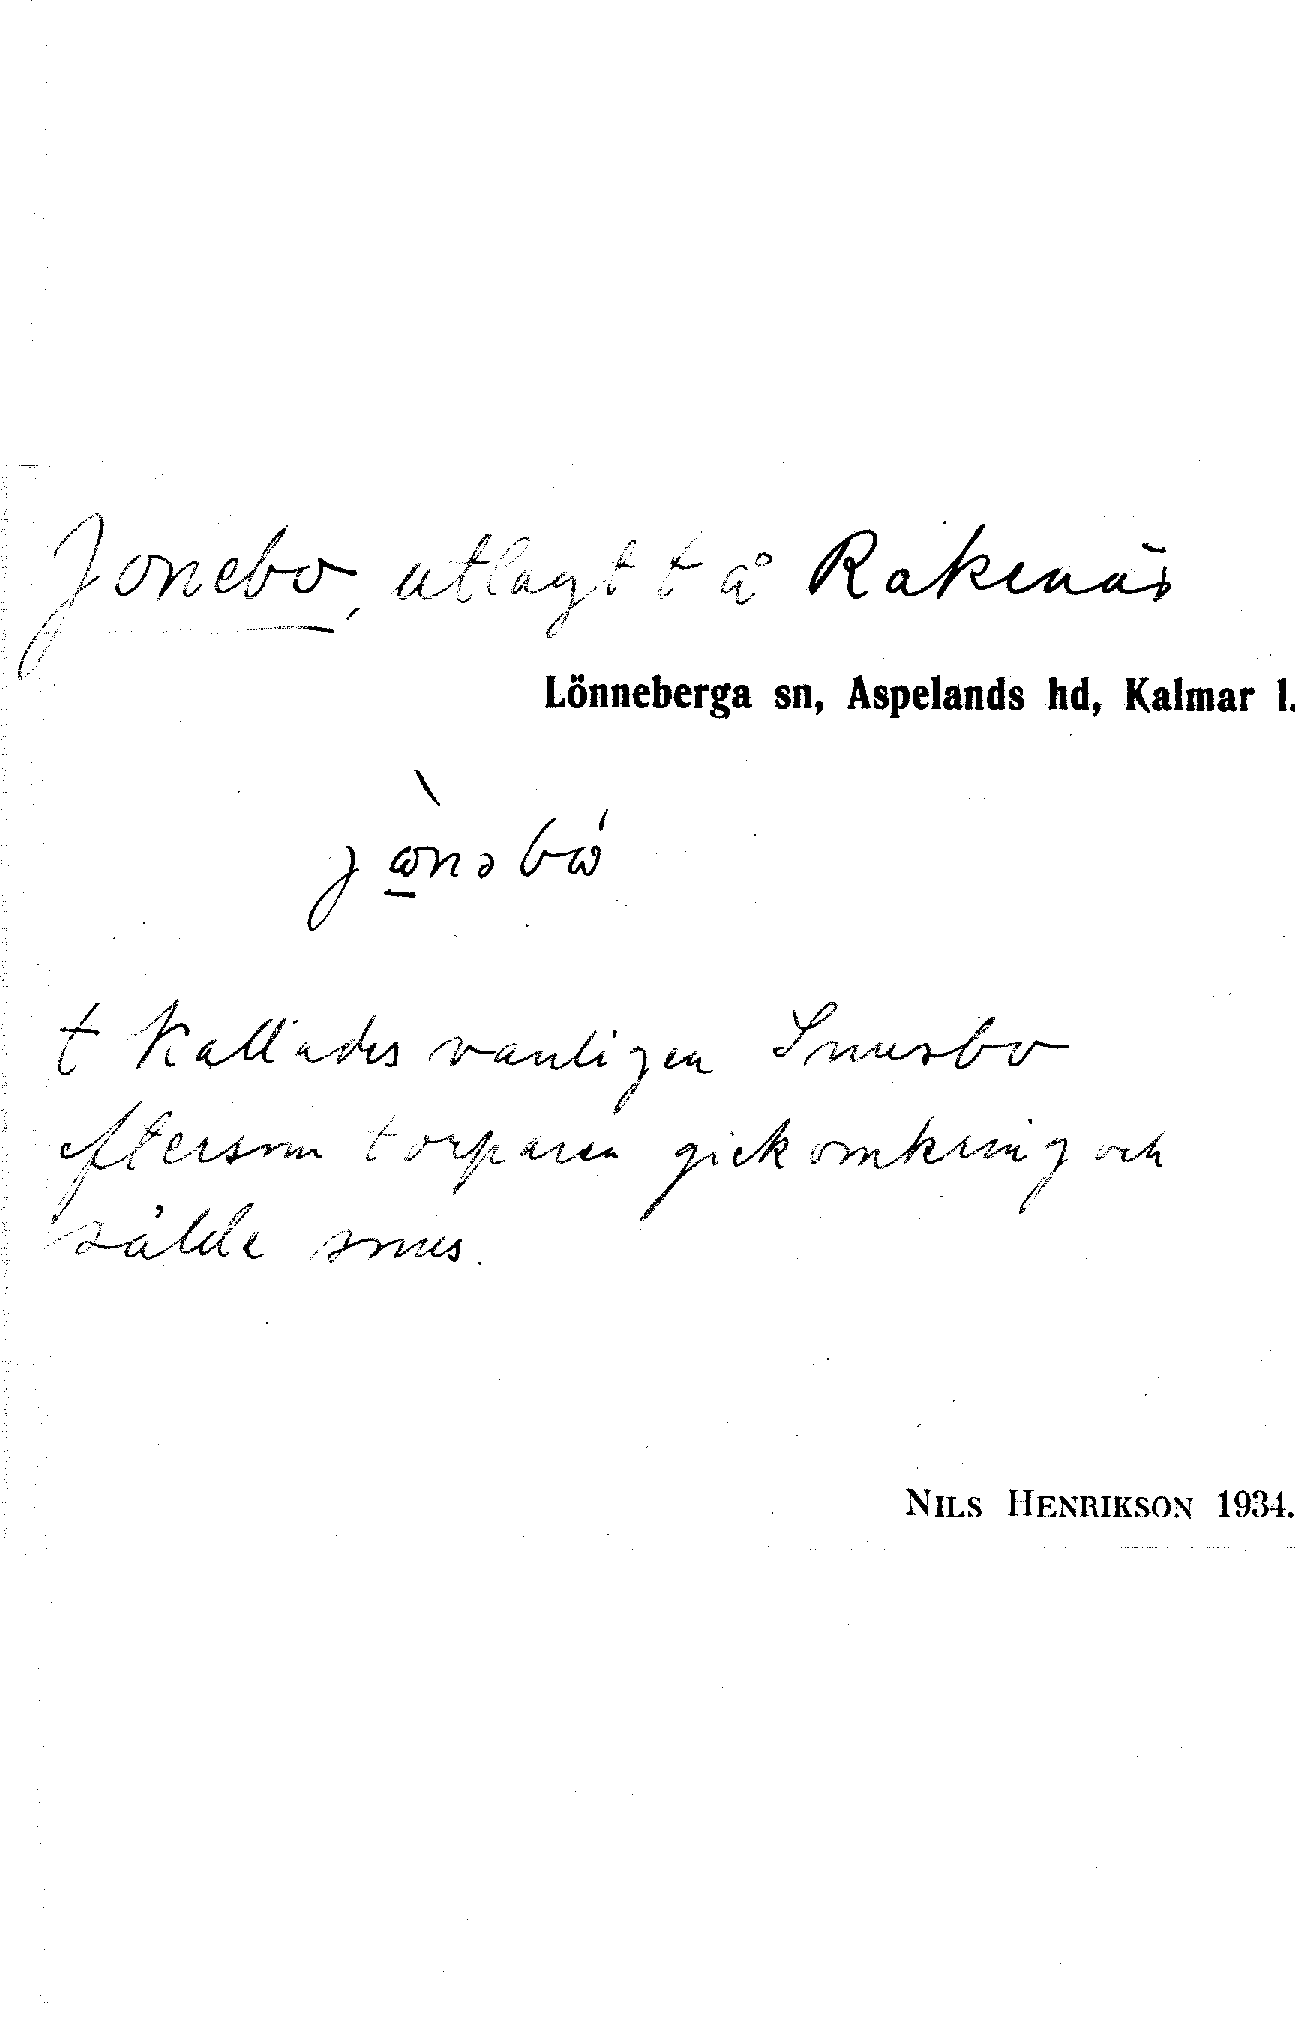 Jonebo, utlagt t å Rakenäs
Lönneberga sn, Aspelands hd, Kalmar l.
t kallades vanligen Snusbo
eftersom torparen gick omkring och
sålde snus.
NILS HENRIKSON 1934.